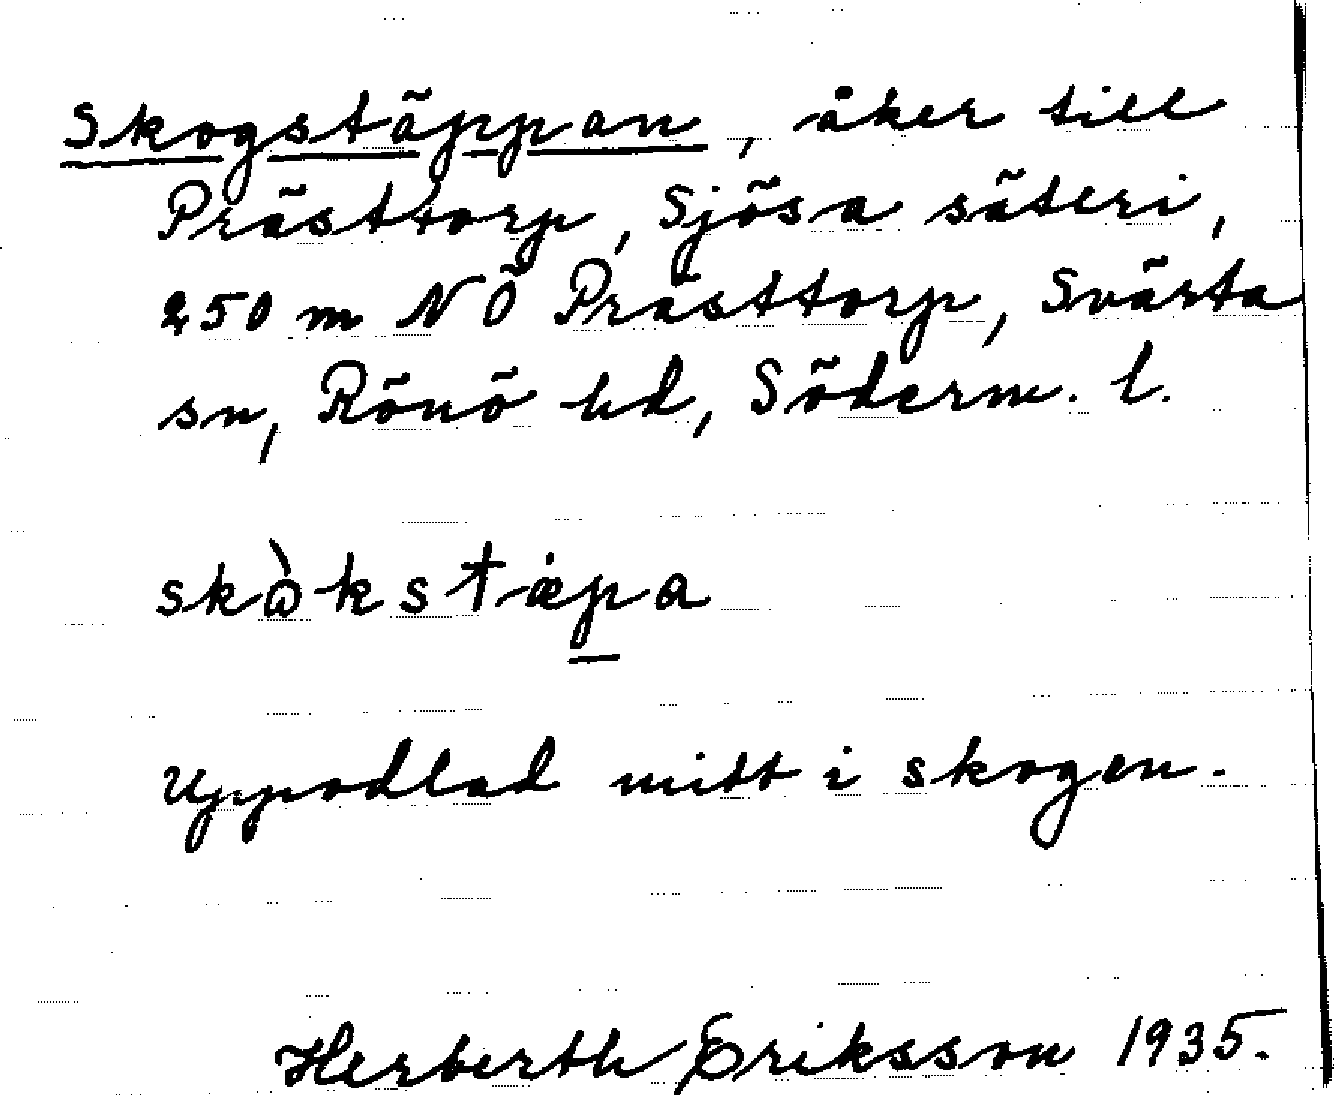 Skogstäppan, åker till
Prästtorp, Sjösa säteri,
250 m NÖ Prästtorp, Svärta
sn, Rönö hd, Söderm. l.
skὼkstæ̇p̲a
Uppodlad mitt i skogen.
Herberth Eriksson 1935.